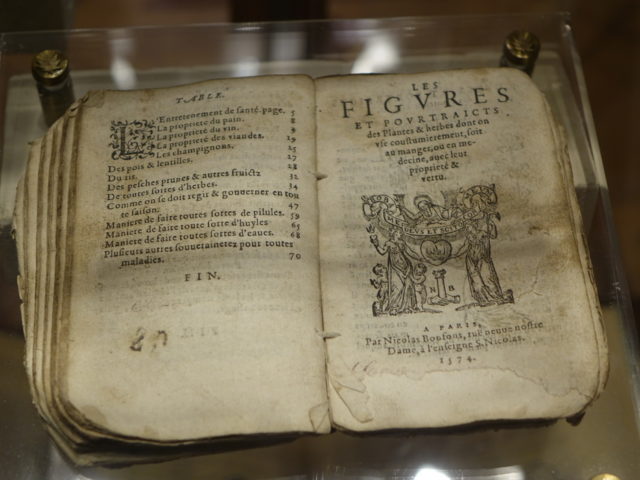 TABLE.
L'Entretenement de santé. page. 5
La proprieté du pain. 8
La proprieté du vin. 9
La proprieté des viandes. 19
Les champignons. 25
Des pois & lentilles. 27
Du ris. 28
Des pesches prunes & autres fruictz 32
De toutes sortes d'herbes. 34
Comme on se doit regir & gouuerner en tou
te saison. 47
Maniere de faire toutes sortes de pilules. 59
Maniere de faire toute sorte d'huyles 65
Maniere de faire toutes sortes d'eaues. 68
Plusieurs autres souuerainetez pour toutes
maladies. 70
FIN.
LES
FIGVRES
ET POVRTRAICTS
des Plantes & herbes dont on
vse coustumierement, soit
au manger, ou en me-
decine, auec leur
proprieté &
vertu.
N B
A PARIS,
Par Nicolas Bonfons, ruë neuue nostre
Dame, à l'enseigne S. Nicolas.
1574.